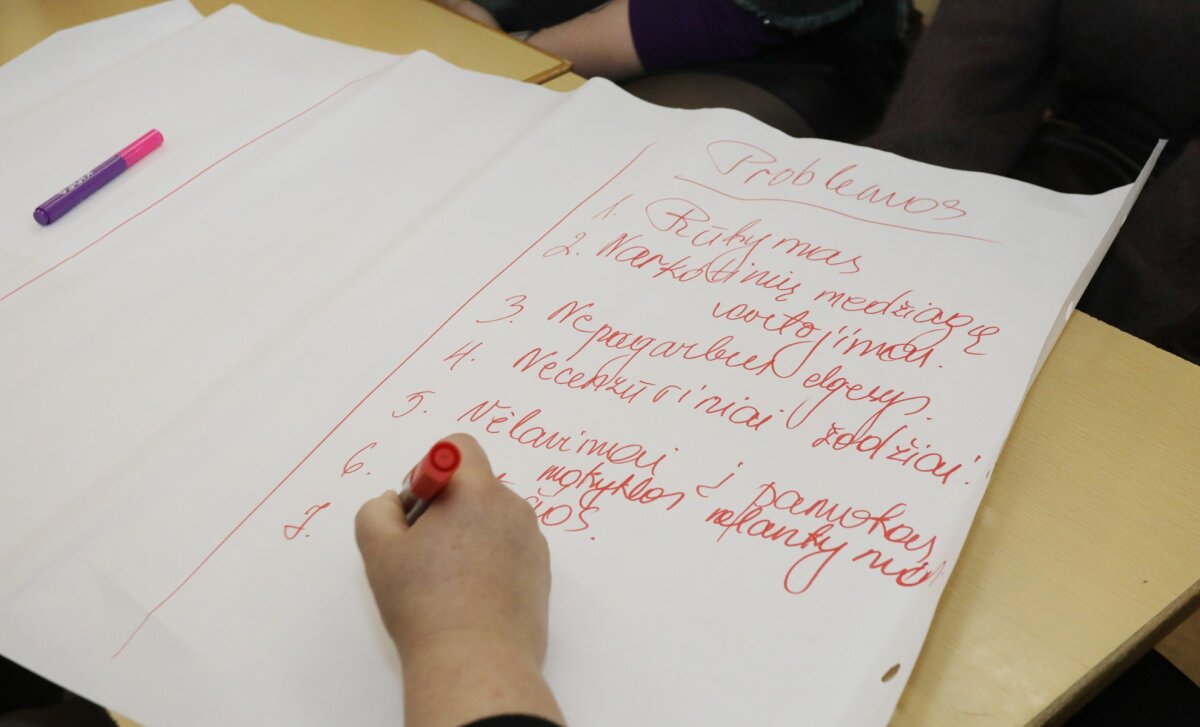 Problemos
1. Rūkymas
2. Narkotinių medžiagų
vartojimai.
3. Nepagarbus elgesys.
4. Necenzūriniai žodžiai.
5. Vėlavimai į pamokas,
6. mokyklos nelankymas
7.